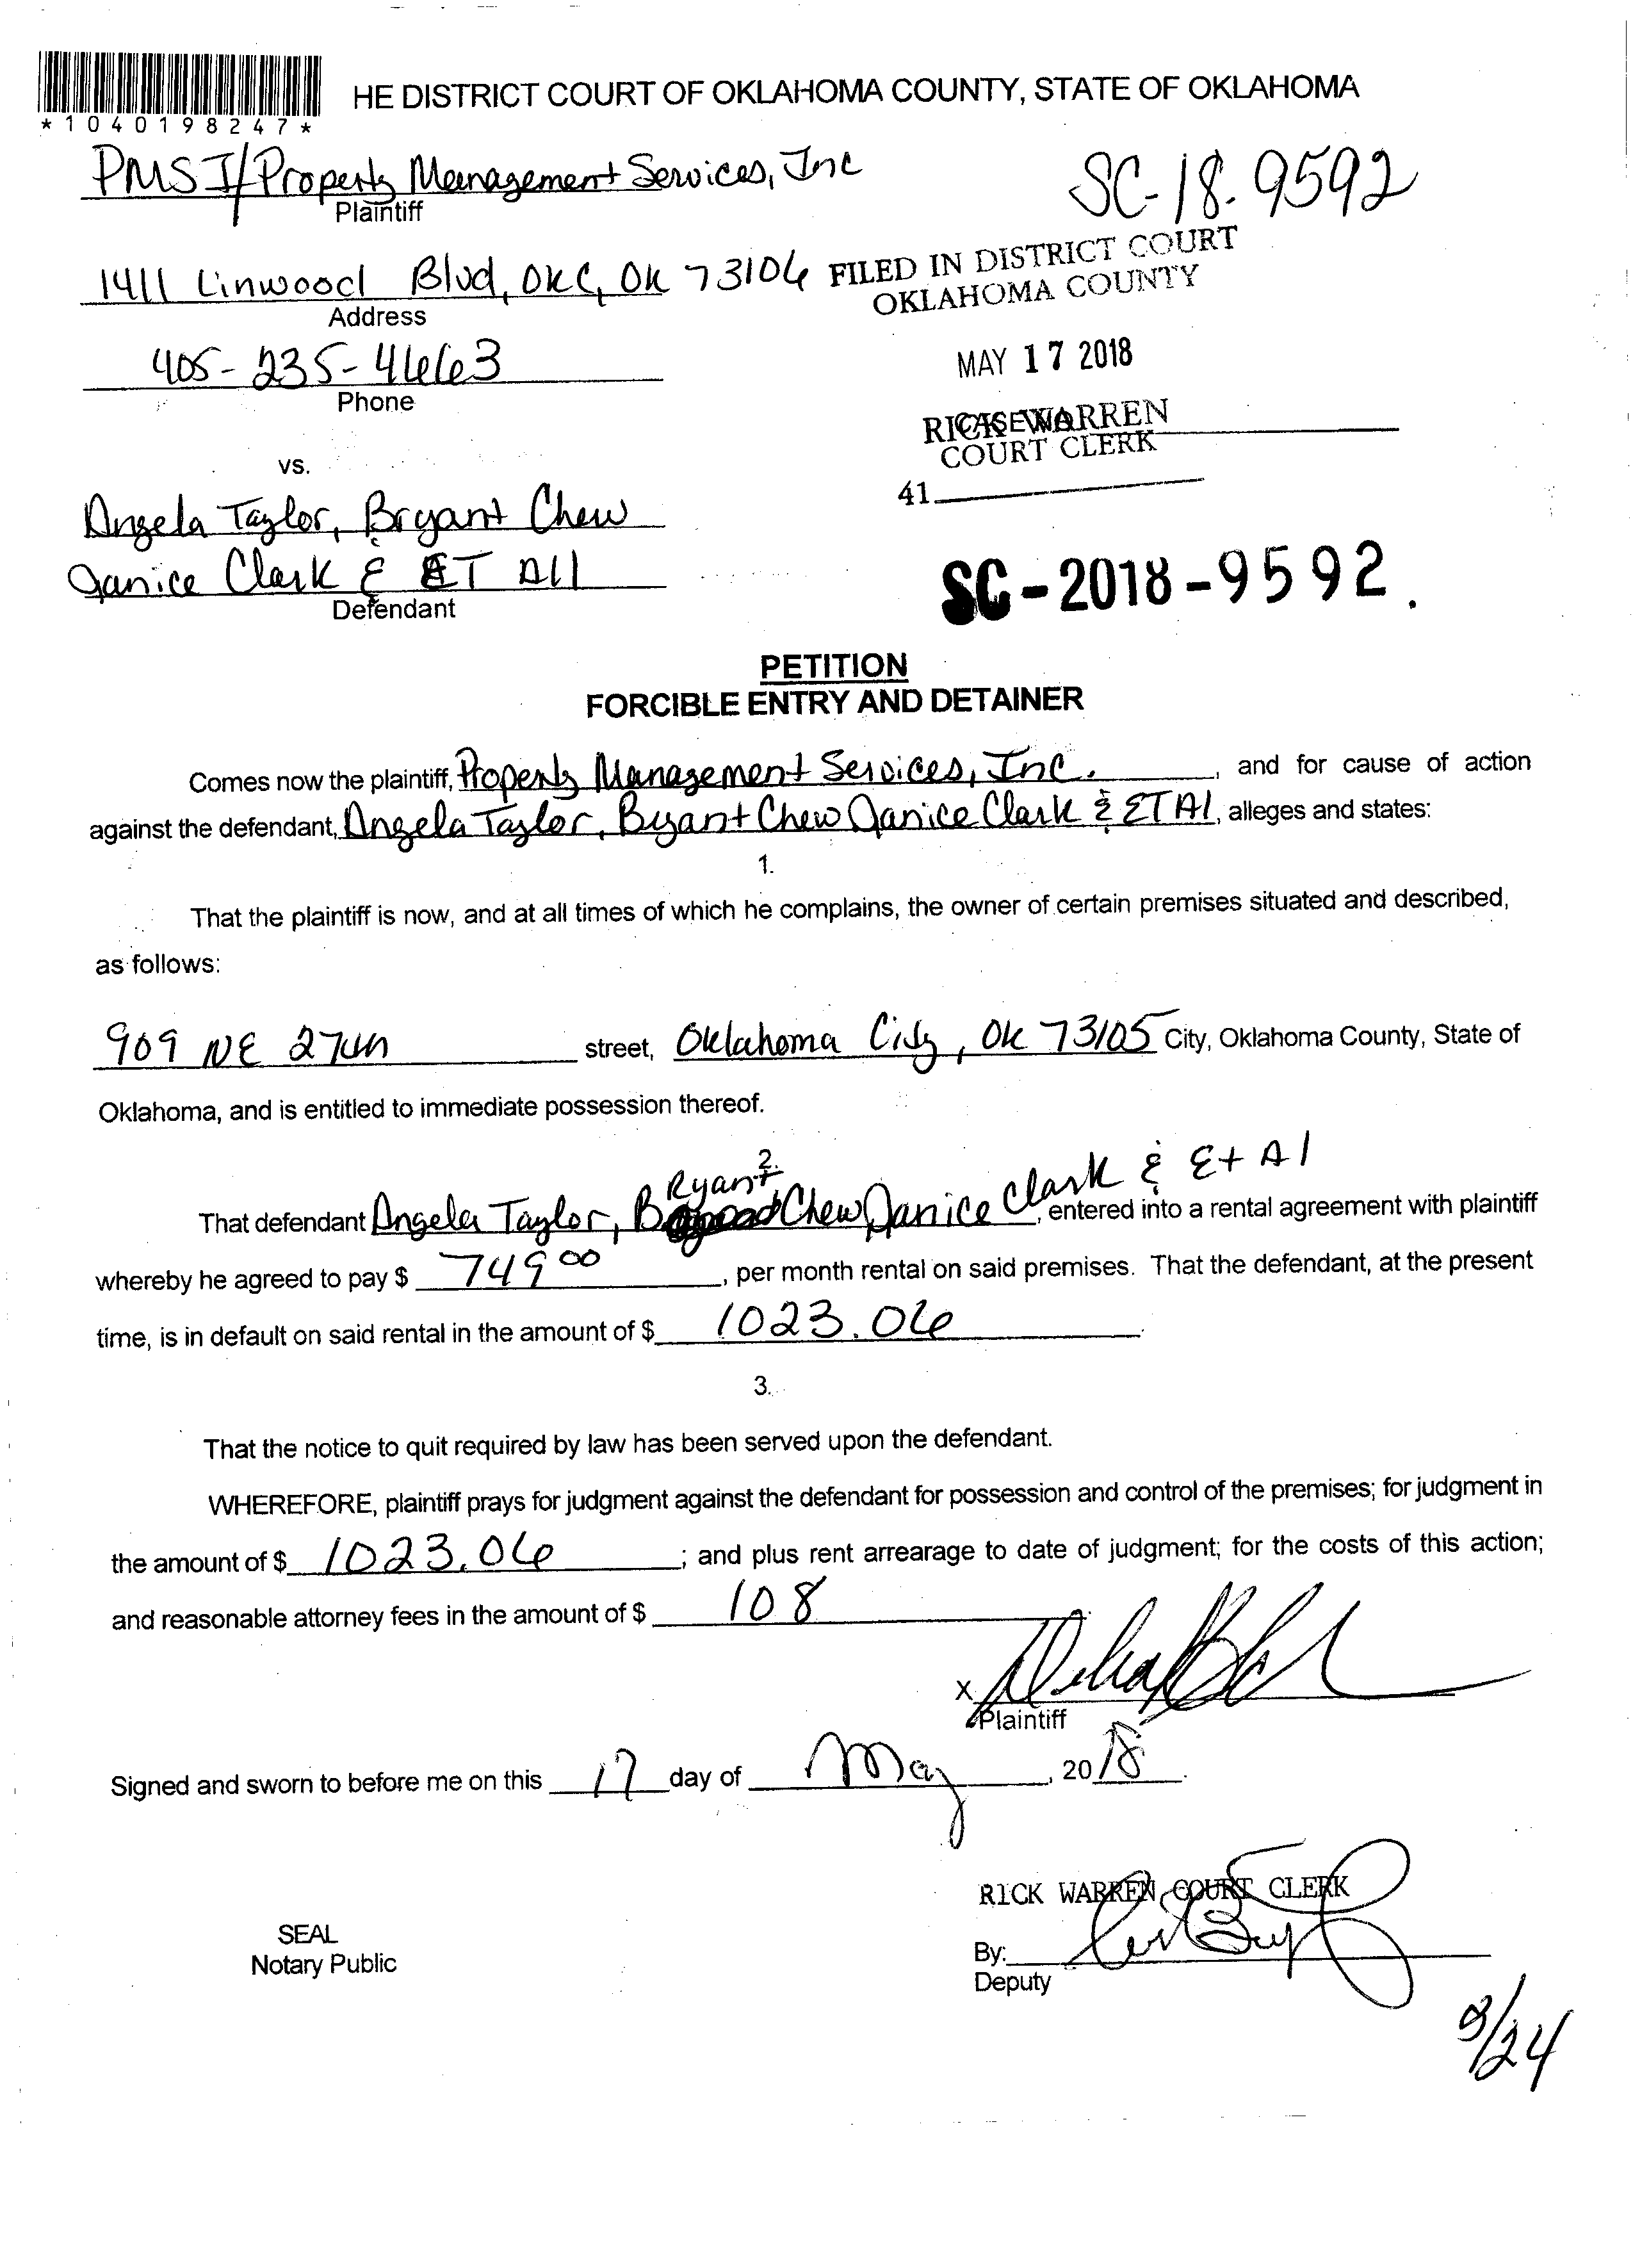 *1040198247*
HE DISTRICT COURT OF OKLAHOMA COUNTY, STATE OF OKLAHOMA
PMSI/Property Management Services, Inc
Plaintiff
SC-18-9592
1411 Linwood Blvd, OKC, OK 73106
Address
FILED IN DISTRICT COURT
OKLAHOMA COUNTY
405-235-4663
Phone
MAY 17 2018
RICK WARREN
CASE NO
COURT CLERK
41
vs.
Angela Taylor, Bryant Chew
Janice Clark & ET All
Defendant
SC-2018-9592.
PETITION
FORCIBLE ENTRY AND DETAINER
Comes now the plaintiff, Property Management Services, Inc., and for cause of action
against the defendant, Angela Taylor, Bryant Chew Janice Clark & ET Al, alleges and states:
1.
That the plaintiff is now, and at all times of which he complains, the owner of certain premises situated and described,
as follows:
909 NE 27th street, Oklahoma City, OK 73105 City, Oklahoma County, State of
Oklahoma, and is entitled to immediate possession thereof.
2.
That defendant Angela Taylor, BRyant Chew, Janice Clark & Et Al, entered into a rental agreement with plaintiff
whereby he agreed to pay $ 749 00, per month rental on said premises. That the defendant, at the present
time, is in default on said rental in the amount of $ 1023.06.
3.
That the notice to quit required by law has been served upon the defendant.
WHEREFORE, plaintiff prays for judgment against the defendant for possession and control of the premises; for judgment in
the amount of $ 1023.06; and plus rent arrearage to date of judgment; for the costs of this action;
and reasonable attorney fees in the amount of $ 108
X
Plaintiff
Signed and sworn to before me on this 17 day of May, 2018.
RICK WARREN COURT CLERK
SEAL
Notary Public
By:
Deputy
/24